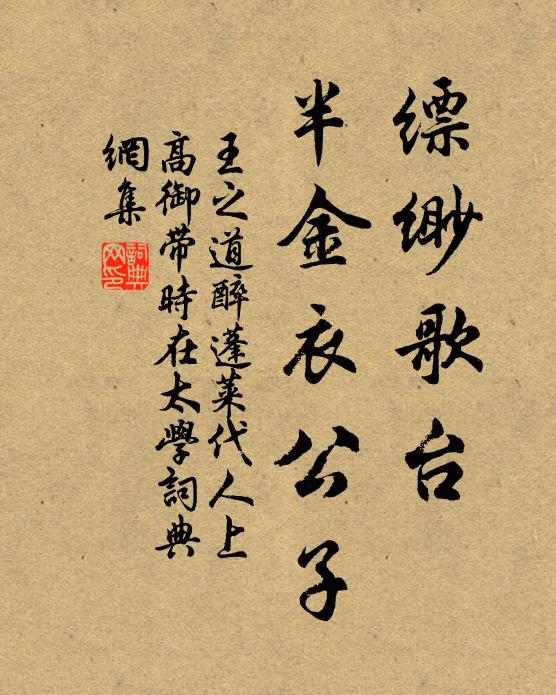 缥缈歌台
半金衣公子
王之道醉蓬莱代人上
高御带時在太學詞典
網集
詞典
网印